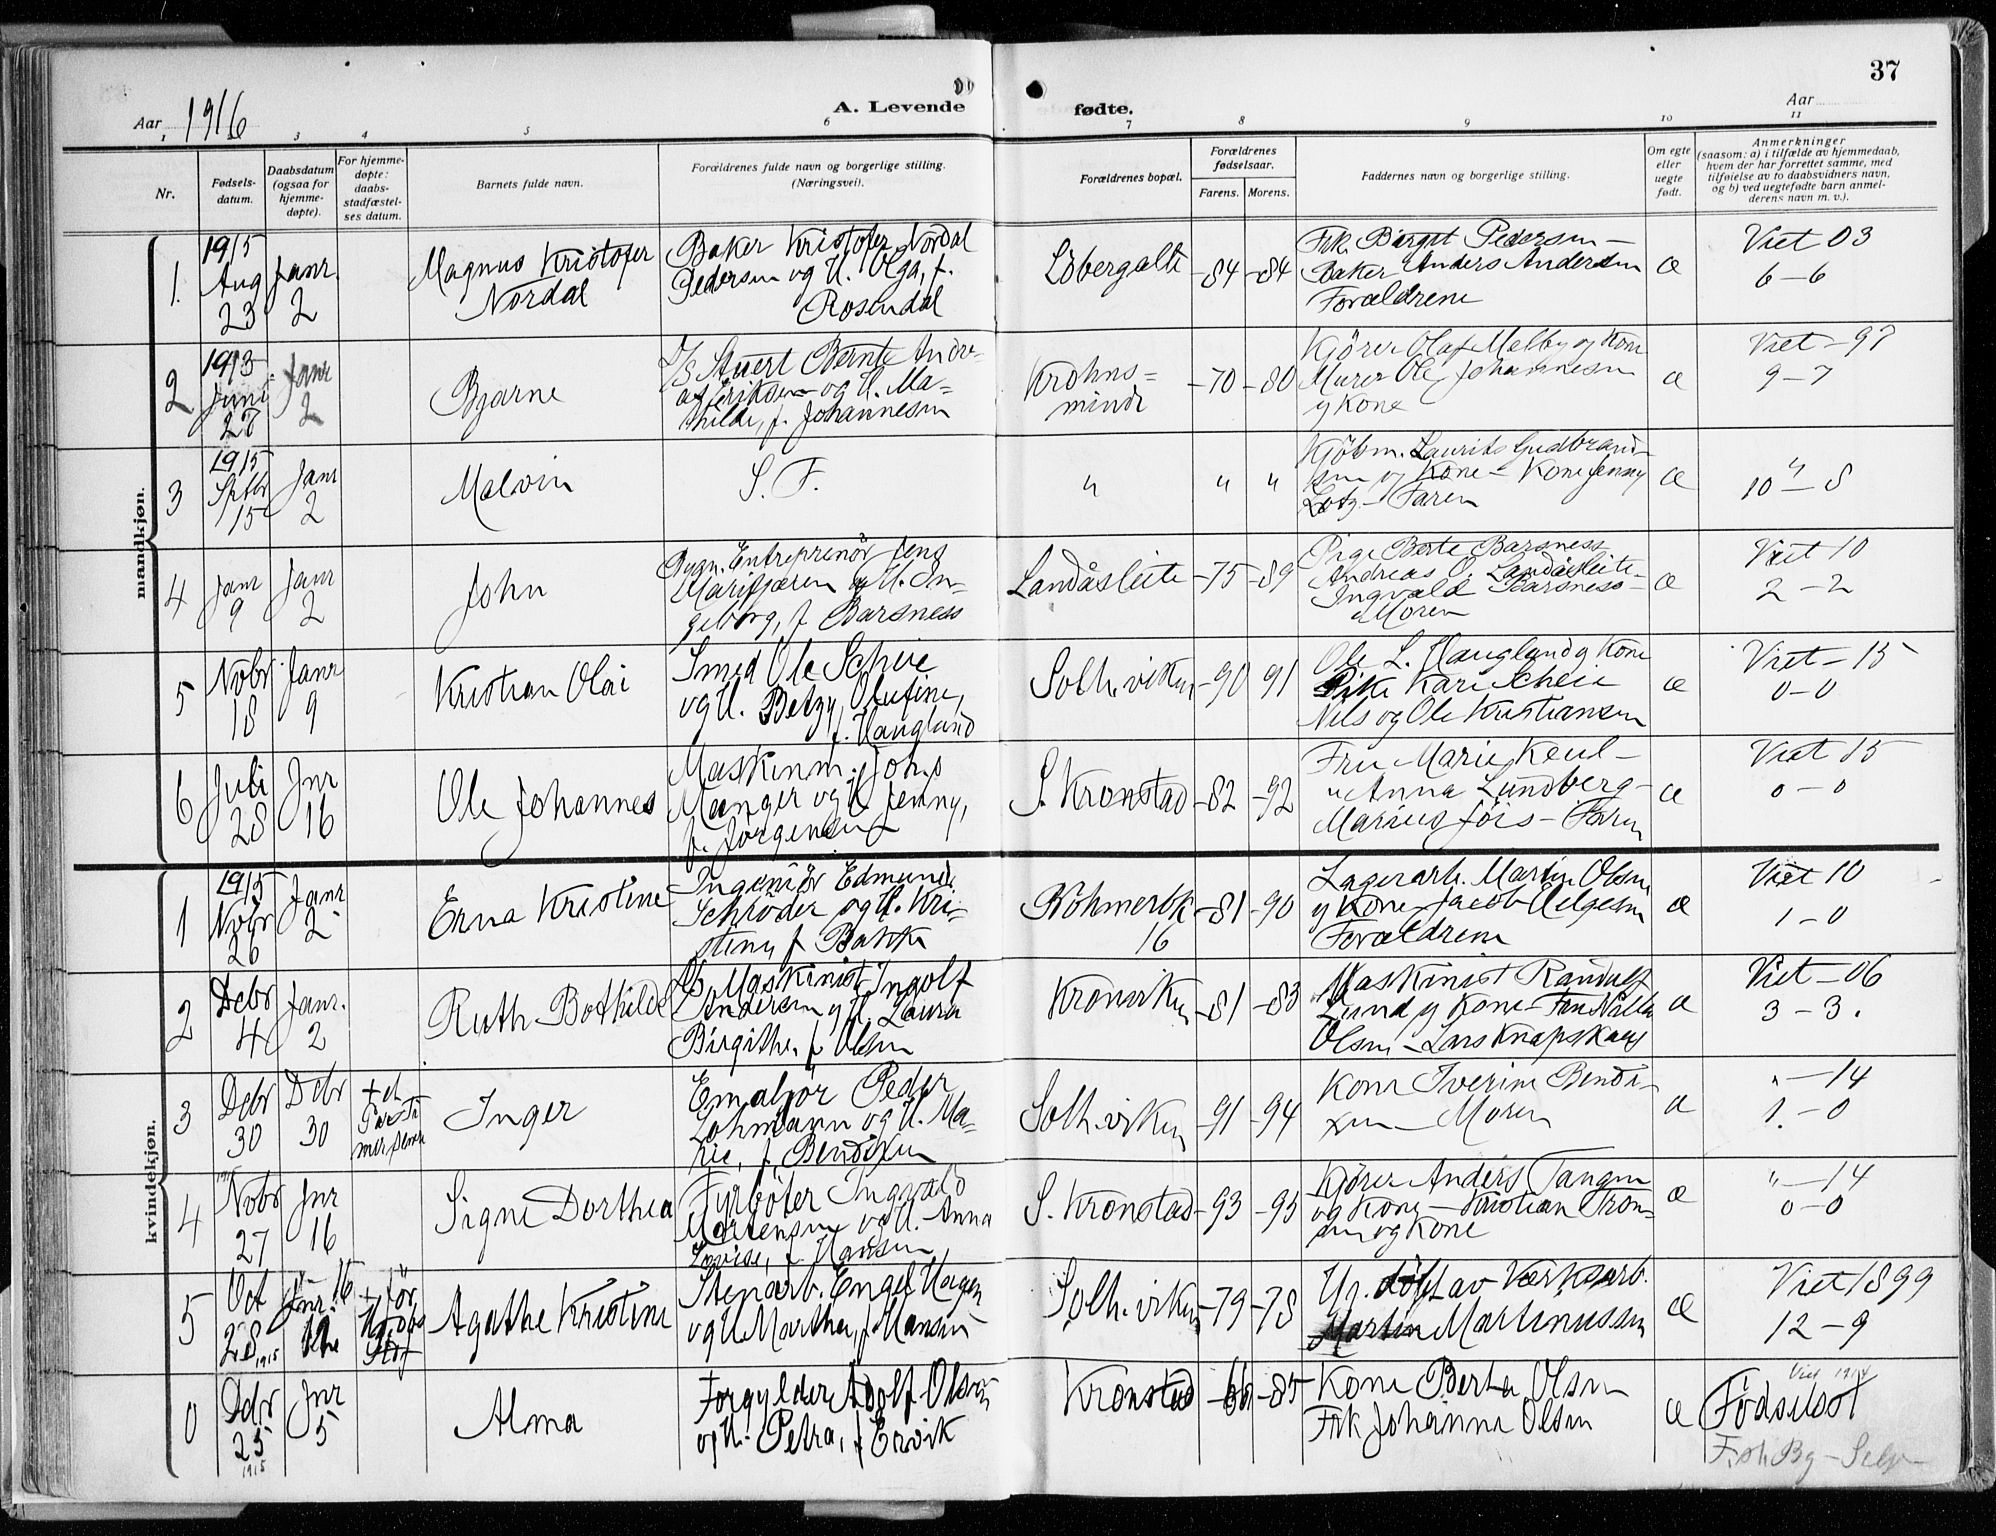 37
Aar 1916
A. Levende fødte.
Aar
1 3 4 5 6 7 8 9 10 11
Nr.
Fødsels-
datum.
Daabsdatum
(ogsaa for
hjemme-
døpte).
For hjemme-
døpte:
daabs-
stadfæstel-
ses datum.
Barnets fulde navn.
Forældrenes fulde navn og borgerlige stilling.
(Næringsvei).
Forældrenes bopæl.
Forældrenes
fødselsaar.
Farens. Morens.
Faddernes navn og borgerlige stilling.
Om egte
eller
uegte
født.
Anmerkninger
(saasom: a) i tilfælde av hjemmedaab,
hvem der har forrettet samme, med
tilføielse av to daabsvidners navn,
og b) ved uegtefødte barn anmel-
derens navn m. v.).
mandkjøn.
1.
1915
Aug
23
Janr.
2
Magnus Kristofer
Nordal
Baker Kristofer Nordal
Pedersen og H. Olga, f.
Rosendal
Løbergalt
-84 -84
Frk. Birgit Pedersen -
Baker Anders Andersen
Forældrene
æ
Viet 03
6-6
2
1913
Juni
27
Janr
2
Bjarne
D/S Stuert Bernt Andre-
as Eriksen og H. Ma-
thilde, f. Johannesen
Krohns-
minde
-70 -80
Kjører Olaf Melby og Kone
Murer Ole Johannesen
og Kone
æ
Viet -97
9-7
3
1915
Septbr
15
Janr
2
Malvin
S. F.
" " "
Kjøbm. Laurits Gudbrand-
sen og Kone - Kone Jenny
Lotz - Faren
æ
"
10-8
4
Janr
9
Janr
2
John
Bygn. Entreprenør Jens
Marifjæren og H. In-
geborg, f Barsness
Landåsleite
-75 -89
Pige Berte Barsness
Andreas O. Landåsleite -
Ingvald Barsness -
Moren
æ
Viet 10
2-2
5
Nobr
18
Janr
9
Kristian Olai
Smed Ole Scheie
og H. Betzy Olufine,
f. Haugland
Solh.viken
-90 91
Ole L. Haugland og Kone
Pike Kari Scheie
Nils og Ole Kristiansen
æ
Viet -15
0-0
6
Juli
28
Jnr
16
Ole Johannes
Maskinm. Johs
Manger og H Jenny,
f. Jørgensen
S. Kronstad
-82 -92
Fru Marie Keul -
" Anna Lundberg -
Marius Jøis - Faren
æ
Viet 15
0-0
kvindekjøn.
1
1915
Nobr
26
Janr
2
Erna Kristine
Ingeniør Edmund
Schrøder og H. Kri-
stine f Bakke
Bøhmerbk
16
-81 -90
Lagerarb. Martin Olsen
og Kone Jacob Helgesen
Forældrene
æ
Viet 10
1-0
2
Debr
4
Janr.
2
Ruth Bothilde
D/S Maskinist Ingolf
Andersen og H. Laura
Birgithe, f Olsen
Kronviken
-81 -83
Maskinist Randulf
Lund og Kone -
Olsen - Lars Knapskaug
æ
Viet -06
3-3.
3
Debr
30
Debr
30
Inger
Emaljør Peder
Lohmann og H. Ma-
rie, f. Bendixen
Solh.viken
-91 -94
Kone Iverine Bendi-
xen - Moren
æ
" -14
1.-0
4
Nobr
27
Jnr
16
Signe Dorthea
Fyrbøter Ingvald
Mortensen og H. Anna
Lovise, f Hansen
S. Kronstad
-93 -95
Kjører Anders Tangen
og Kone - Kristian Tron-
sen og Kone
æ
" -14
0-0
5
Oct
28
1915
Jnr. 16
Agathe Kristine
Stenarb. Engel Hagen
og H Marthe, f Hansen
Solh.viken
-79 -78
Hj. døpt av Værksarb.
Martin Martinussen
æ
Viet 1899
12-9
0
Debr
25
1915
Jnr
5
Alma
Forgylder Adolf Olsen
og H. Petra, f Ervik
Kronstad
-66 -85
Kone Berta Olsen
Frk Johanne Olsen
æ
Viet 1914
Fødselsst